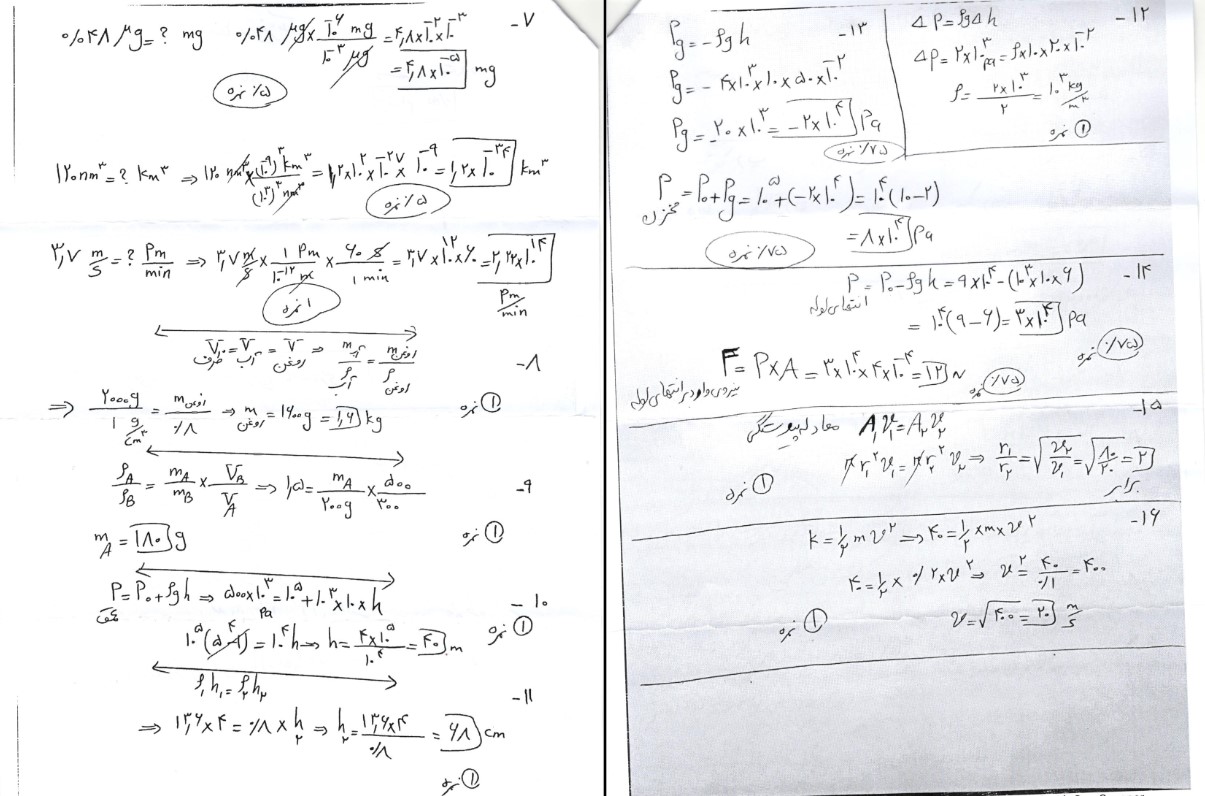 -۷
۰/۴۸ μg = ? mg   ۰/۴۸ μg × ۱۰^-۶ mg / ۱۰^-۳ μg = ۴,۸×۱۰^-۲×۱۰^-۳
= ۴,۸×۱۰^-۵ mg
۰/۵ نمره
۱۲۰ nm^۳ = ? km^۳ ⇒ ۱۲۰ nm^۳ × (۱۰^-۹)^۳ km^۳ / (۱۰^۳)^۳ nm^۳ = ۱,۲×۱۰^۲×۱۰^-۲۷×۱۰^-۹ = ۱,۲×۱۰^-۳۴ km^۳
۰/۵ نمره
۳,۷ m/s = ? Pm/min ⇒ ۳,۷ m/s × ۱ Pm / ۱۰^-۱۲ m × ۶۰ s / ۱ min = ۳,۷×۱۰^۱۲×۶۰ = ۲,۲۲×۱۰^۱۴ Pm/min
۱ نمره
-۸
V ظرف = V آب = V روغن ⇒ m آب / ρ آب = m روغن / ρ روغن
⇒ ۲۰۰۰g / ۱ g/cm^۳ = m روغن / ۰/۸ ⇒ m روغن = ۱۶۰۰g = ۱,۶ kg
۱ نمره
-۹
ρA/ρB = mA/mB × VB/VA ⇒ ۱,۵ = mA/۲۰۰g × ۵۰۰/۳۰۰
mA = ۱۸۰ g
۱ نمره
-۱۰
P = P۰ + ρgh ⇒ ۵۰۰×۱۰^۳ Pa = ۱۰^۵ + ۱۰^۳×۱۰×h
۱۰^۵(۵-۱) = ۱۰^۴h ⇒ h = ۴×۱۰^۵ / ۱۰^۴ = ۴۰ m
۱ نمره
-۱۱
ρ۱h۱ = ρ۲h۲
⇒ ۱۳,۶×۴ = ۰/۸×h۲ ⇒ h۲ = ۱۳,۶×۴ / ۰/۸ = ۶۸ cm
۱ نمره
-۱۲
ΔP = ρgΔh
ΔP = ۲×۱۰^۳ Pa = ρ×۱۰×۲۰×۱۰^-۲
ρ = ۲×۱۰^۳ / ۲ = ۱۰^۳ kg/m^۳
۱ نمره
-۱۳
Pg = -ρgh
Pg = -۴×۱۰^۳×۱۰×۵۰×۱۰^-۲
Pg = -۲۰×۱۰^۳ = -۲×۱۰^۴ Pa
۰/۷۵ نمره
P مخزن = P۰ + Pg = ۱۰^۵ + (-۲×۱۰^۴) = ۱۰^۴(۱۰-۲)
= ۸×۱۰^۴ Pa
۰/۷۵ نمره
-۱۴
P انتهای لوله = P۰ - ρgh = ۹×۱۰^۴ - (۱۰^۳×۱۰×۶)
= ۱۰^۴(۹-۶) = ۳×۱۰^۴ Pa
۰/۷۵ نمره
F = P×A = ۳×۱۰^۴×۴×۱۰^-۴ = ۱۲ N
نیروی وارد بر انتهای لوله
۰/۷۵ نمره
-۱۵
معادله پیوستگی A۱v۱ = A۲v۲
πr۱^۲v۱ = πr۲^۲v۲ ⇒ r۱/r۲ = √(v۲/v۱) = √(۸۰/۲۰) = ۲ برابر
۱ نمره
-۱۶
k = ۱/۲ mv^۲ ⇒ ۴۰ = ۱/۲ × m × v^۲
۴۰ = ۱/۲ × ۰/۲ × v^۲ ⇒ v^۲ = ۴۰ / ۰/۱ = ۴۰۰
v = √۴۰۰ = ۲۰ m/s
۱ نمره